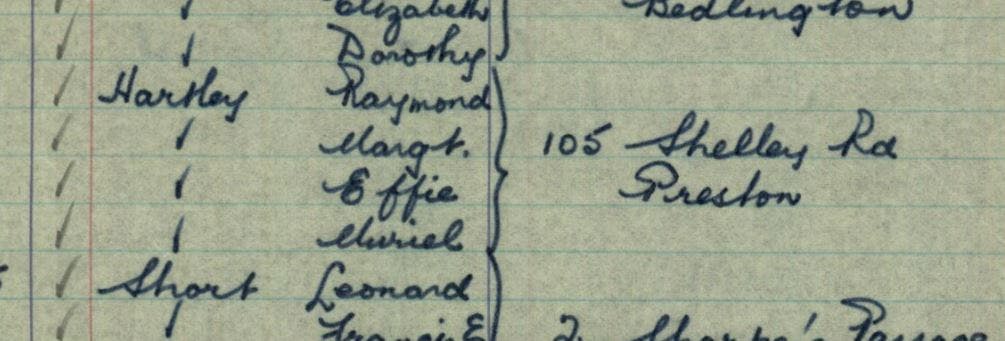 Elizabeth Bedlington
Dorothy
Hartley Raymond
Margt. 105 Shelley Rd
Effie Preston
Muriel
Short Leonard
2